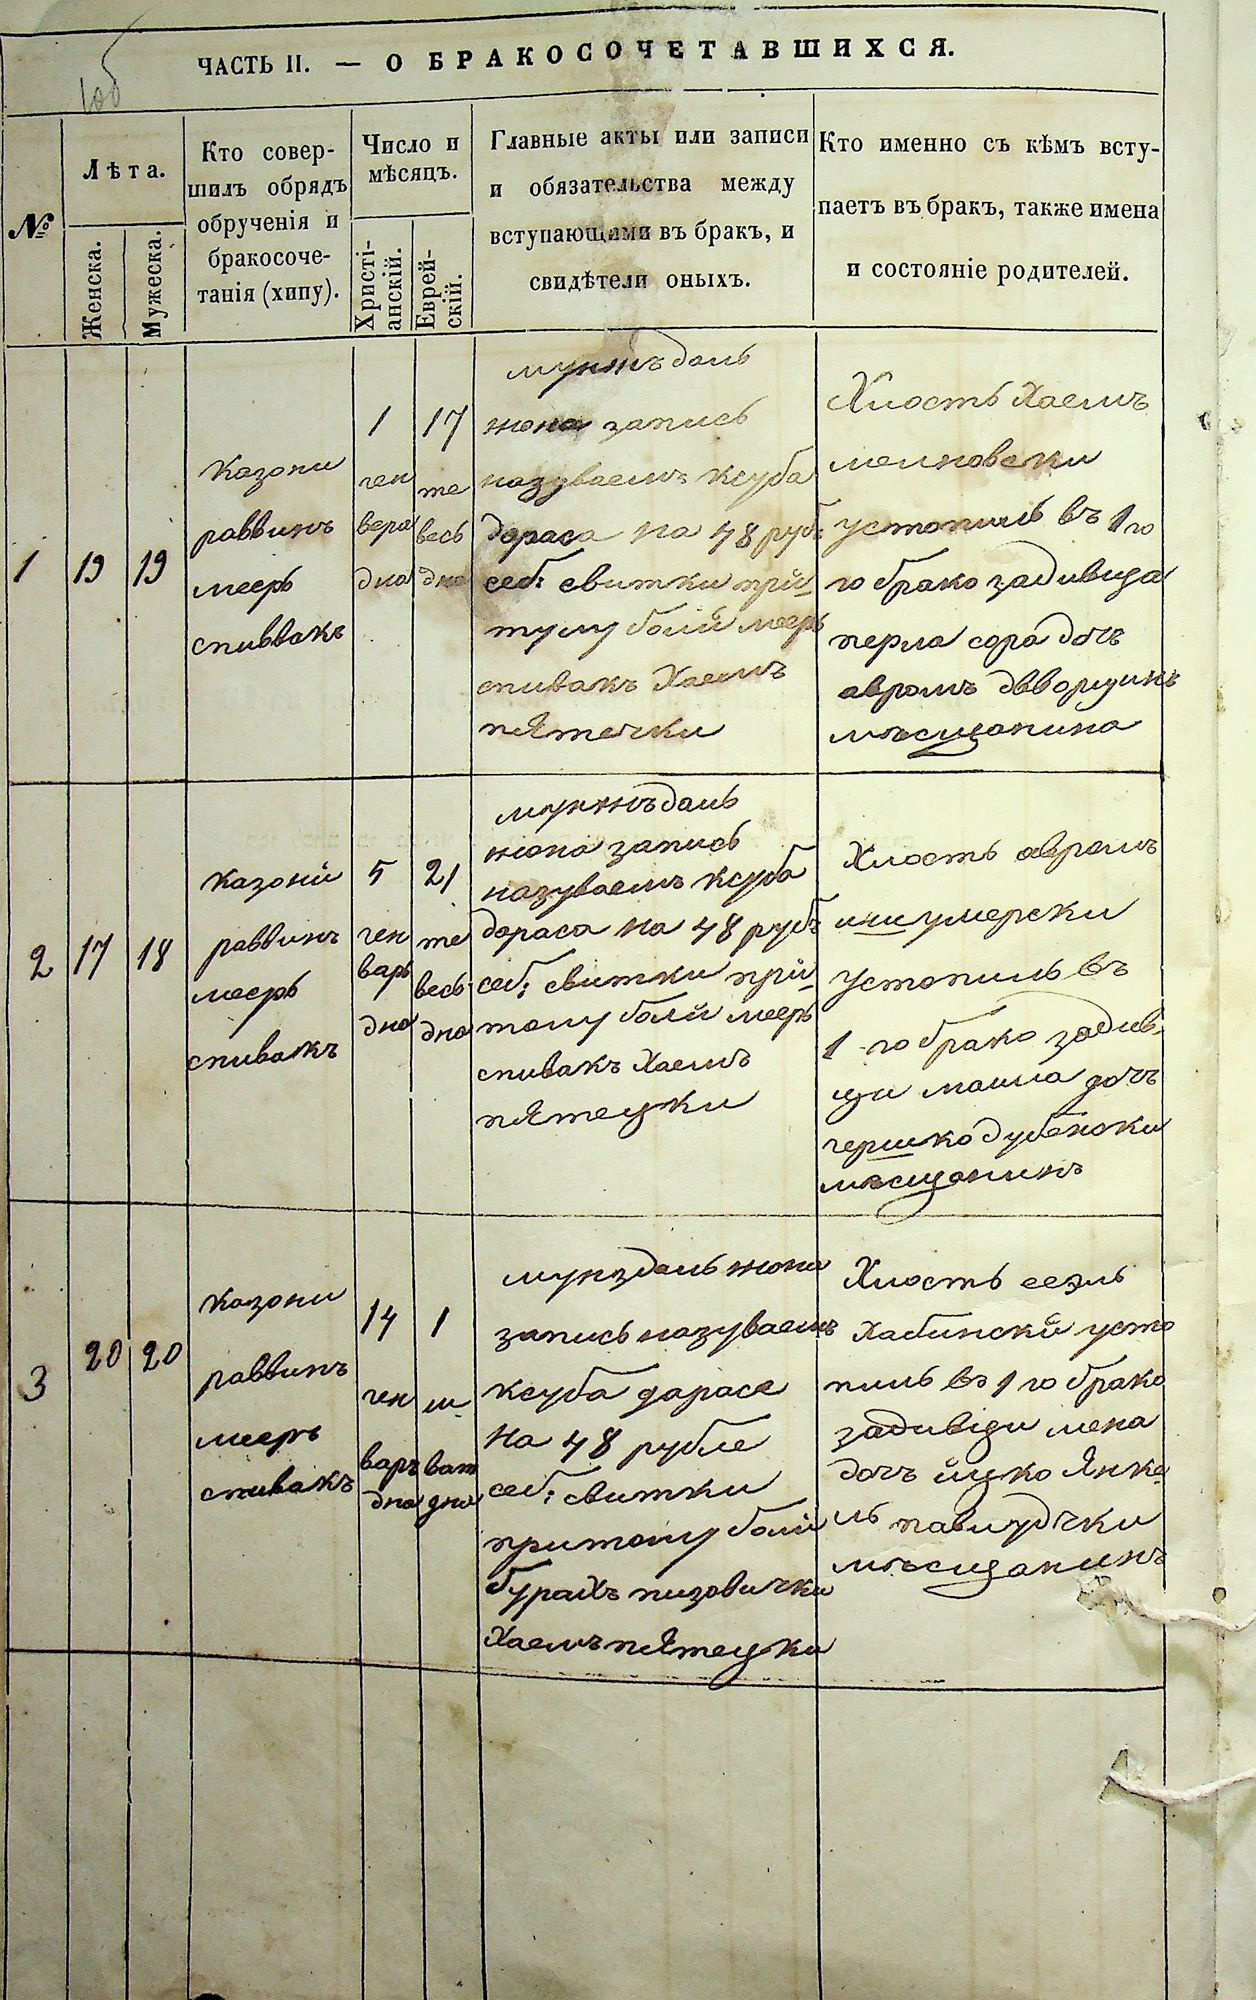 ЧАСТЬ II. — О БРАКОСОЧЕТАВШИХСЯ.
№
Лѣта.
Женска.
Мужеска.
Кто совер-
шилъ обрядъ
обрученія и
бракосоче-
танія (хипу).
Число и
мѣсяцъ.
Христі-
анскій.
Еврей-
скій.
Главные акты или записи
и обязательства между
вступающими въ бракъ, и
свидѣтели оныхъ.
Кто именно съ кѣмъ всту-
паетъ въ бракъ, также имена
и состояніе родителей.
1
19
19
Казони
раввинъ
меерь
спиввакъ
1
ген
вера
дна
17
те
весь
дна
мунжъ даль
жона запись
назуваемъ ксуба
дораса на 48 руб:
себ: свитки при
тулу боли меерь
спивакъ Хаемъ
пЯтечки
Хлость Хаемъ
мелновски
устопиль въ 1 го
го брако задивица
перла сора дочъ
авромъ двворцинъ
мѣсщонина
2
17
18
Казоній
раввинъ
меерь
спивакъ
5
ген
варь
дна
21
те
весь
дна
мунжъ даль
жона запись
назуваемъ ксуба
дораса на 48 рубъ
себ: свитки при
тому боли меерь
спивакъ Хаемъ
пЯтецки
Хлость авромъ
устопиль въ
1 го брако задив
ци маша дочъ
гершко дубенски
мѣсщонинъ
3
20
20
Казони
раввинъ
меерь
спивакъ
14
ген
варъ
дна
1
ш
ват
дна
мунздаль жона
запись назуваемъ
ксуба дарасе
на 48 рубле
себ: свитки
притому боли
Хаемъ пЯтецки
Хлость
Хабинскй усто
пиль въ 1 го брако
задивіци мена
дочъ ицко Янке
ль
мѣсщонинъ